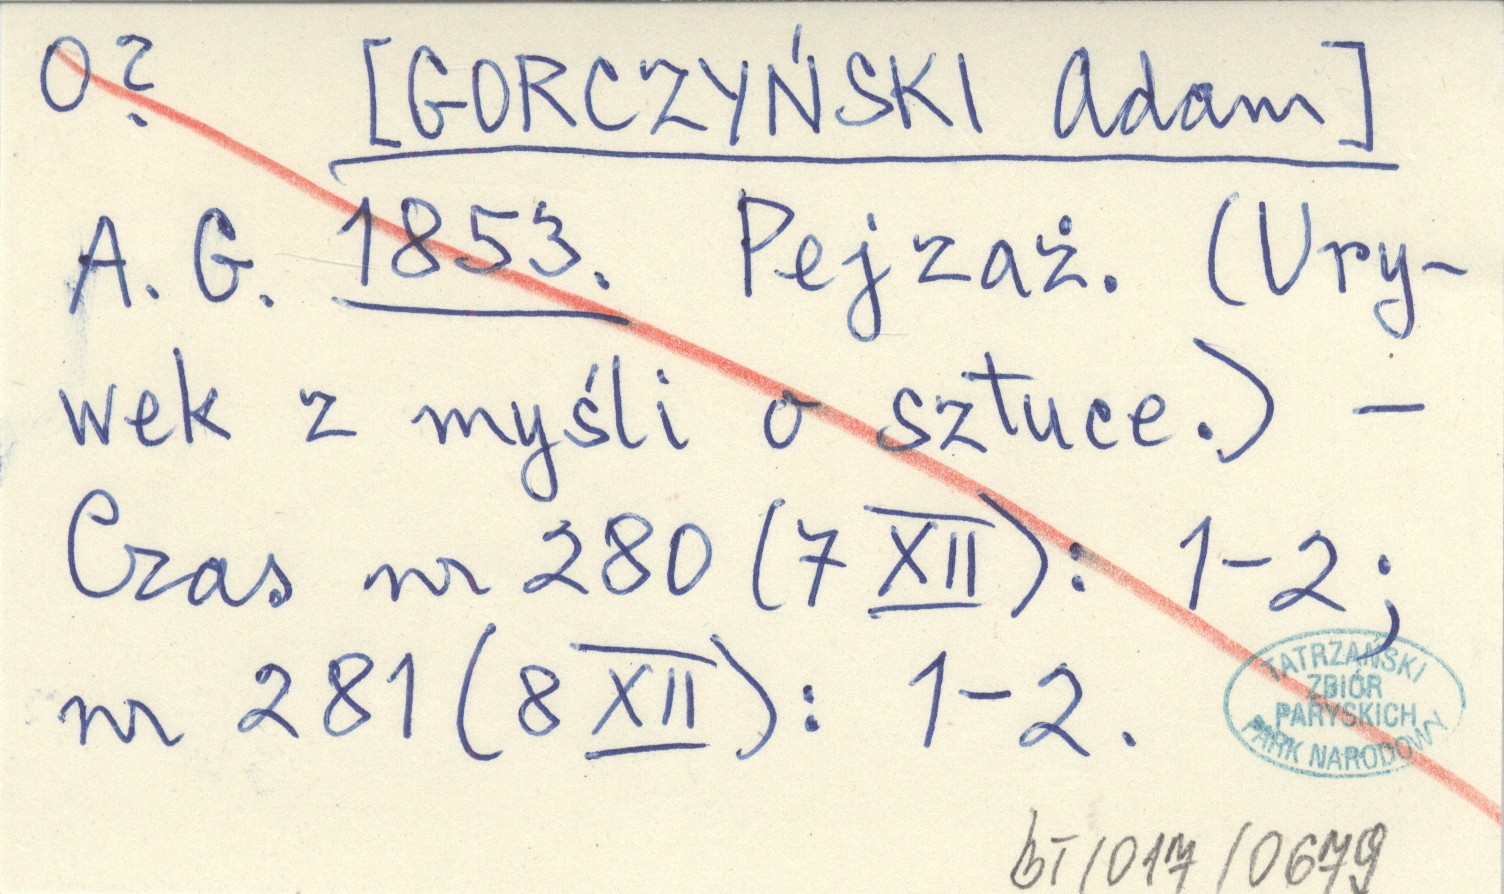 O? [GORCZYŃSKI Adam]
A. G. 1853. Pejzaż. (Ury-
wek z myśli o sztuce.) –
Czas nr 280 (7 XII): 1-2;
nr 281 (8 XII): 1-2.
TATRZAŃSKI
ZBIÓR
PARYSKICH
PARK NARODOWY
bT/017/0679